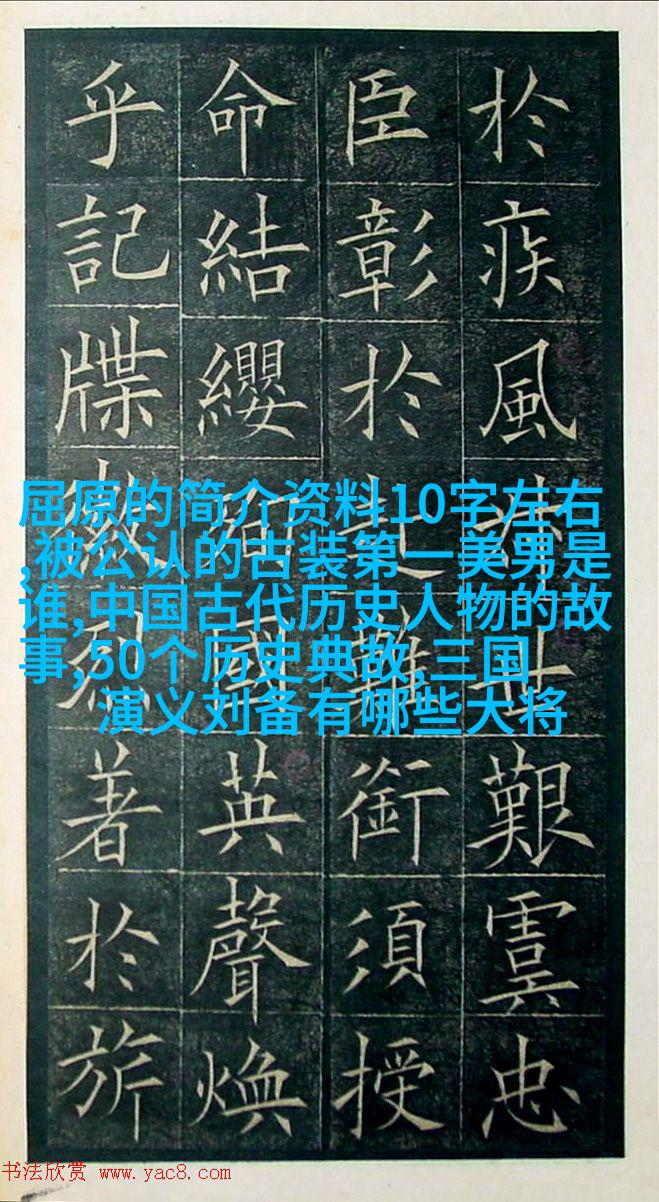 於疾風叔世艱虞忠
臣彰於赴難銜須授
命結纓殉國英聲煥
乎記牒徽烈著於旂
屈原的简介资料10字左右
,被公认的古装第一美男是
谁,中国古代历史人物的故
事,50个历史典故,三国
演义刘备有哪些大将
书法欣赏 www.yac8.com